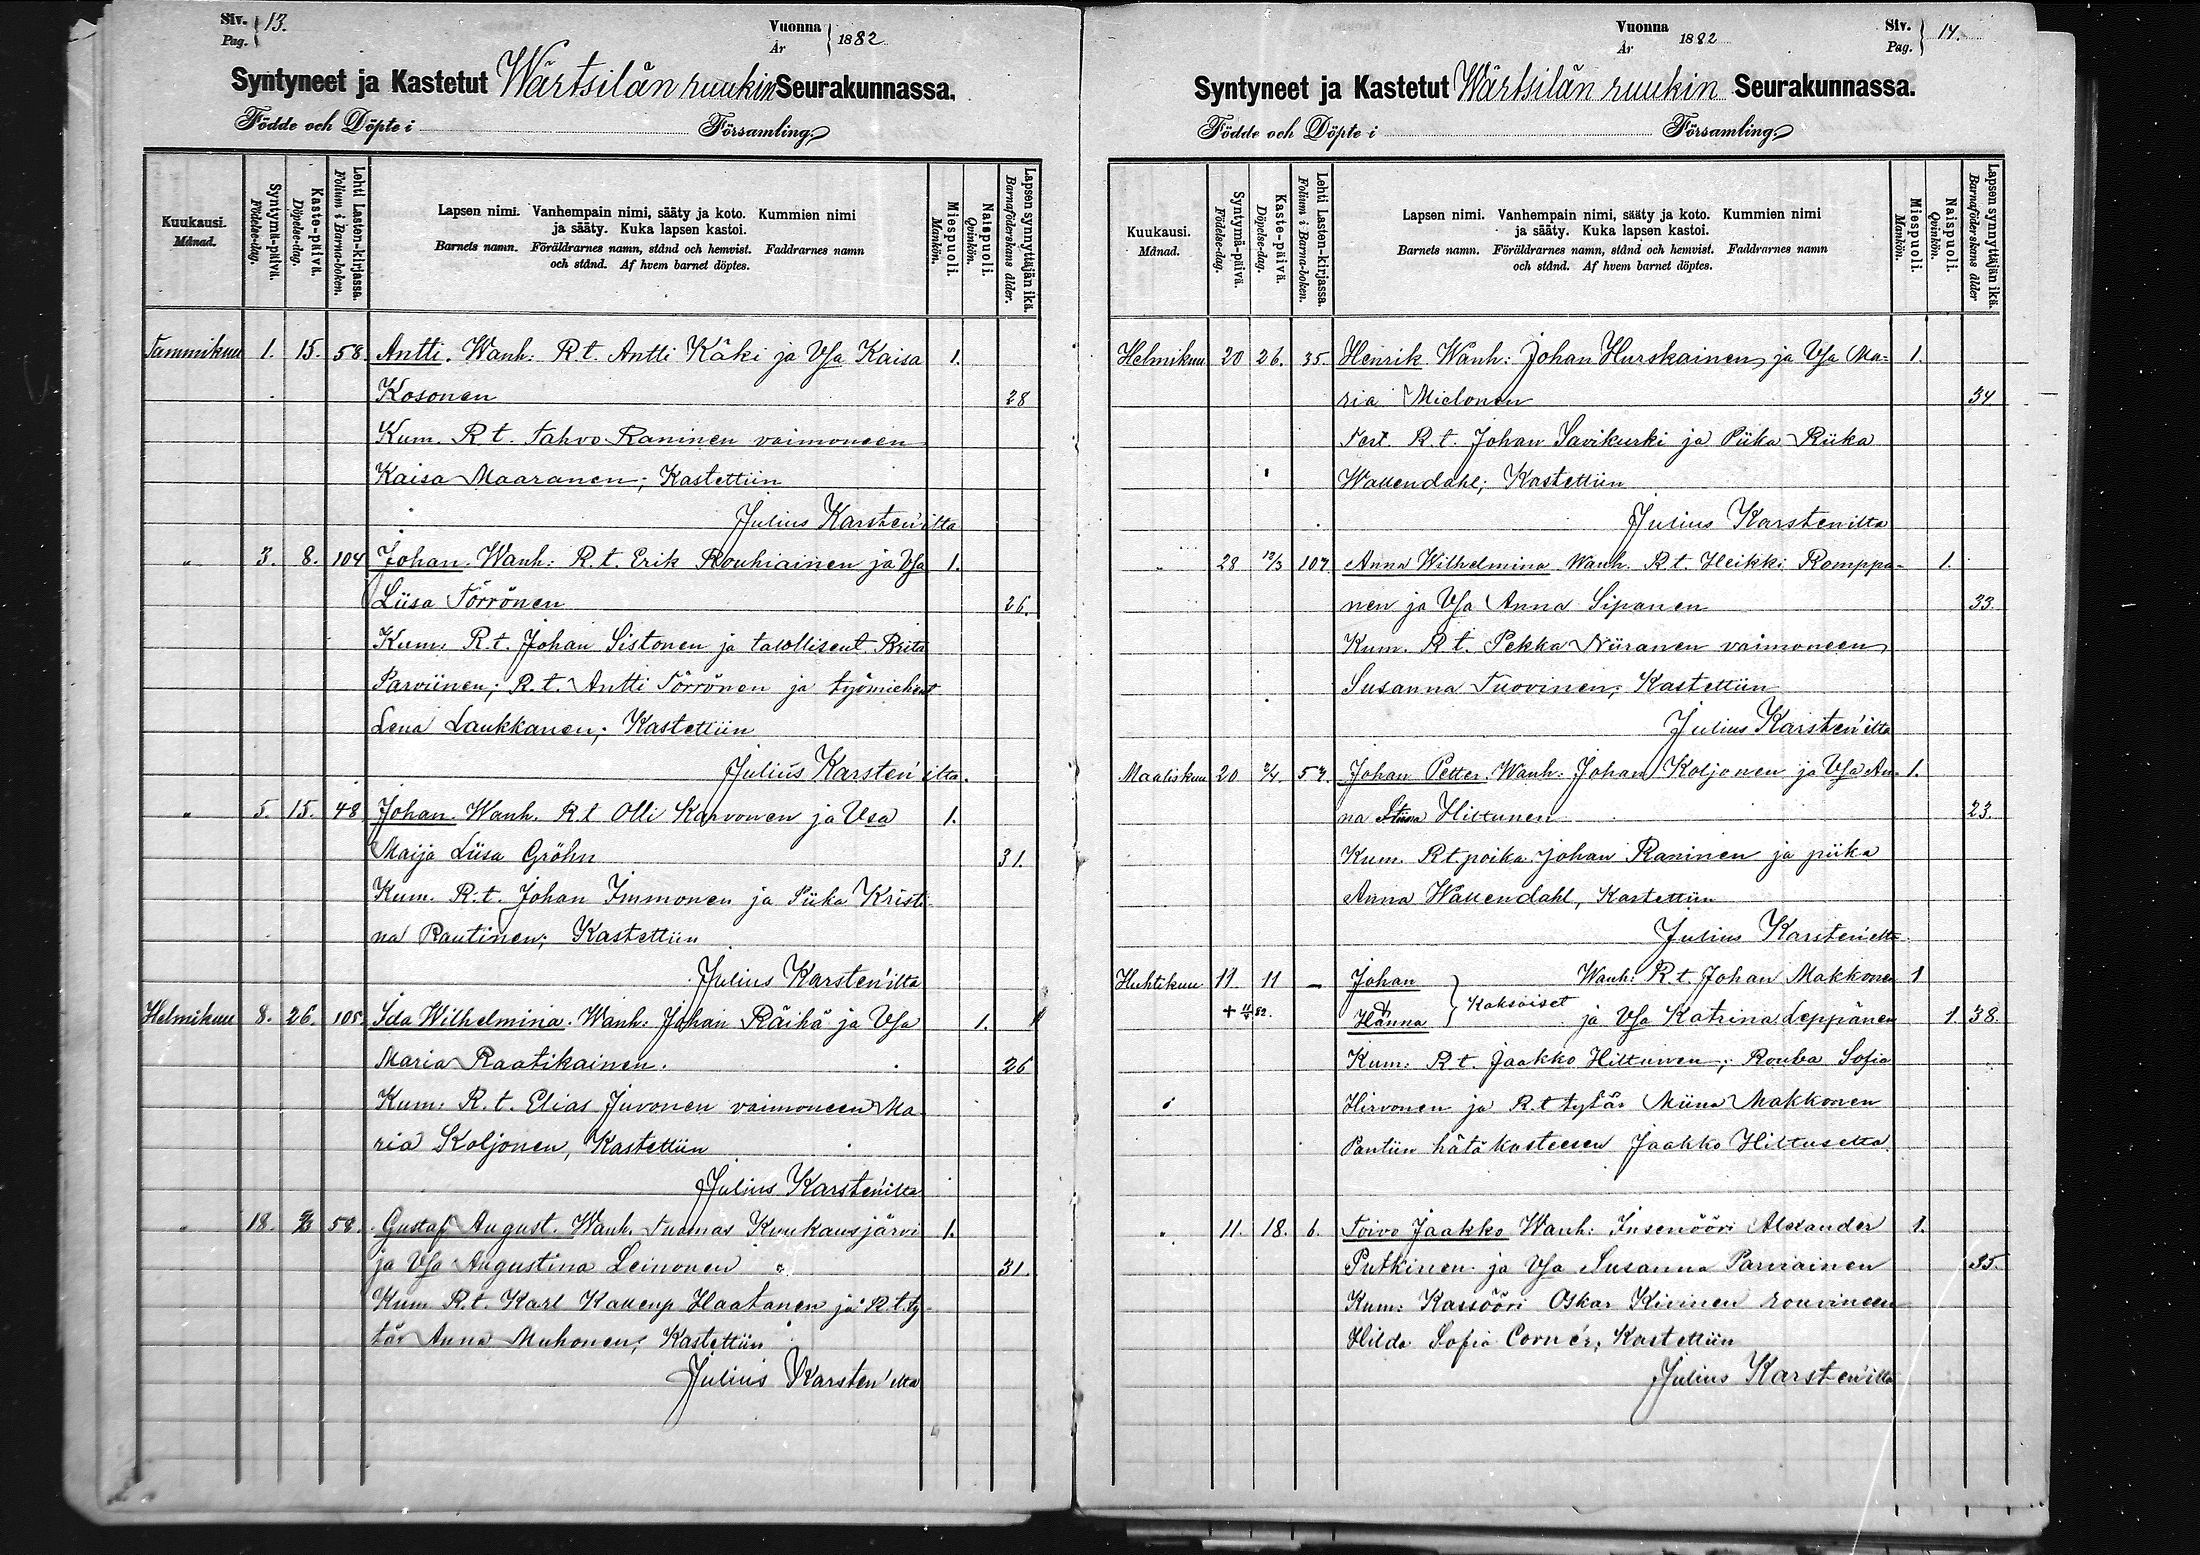 Siv. 13.
Pag.
Vuonna 1882
År
Syntyneet ja Kastetut Wärtsilän ruukin Seurakunnassa.
Födde och Döpte i Församling.
Kuukausi.
Månad.
Syntymä-päivä.
Födelse-dag.
Kaste-päivä.
Döpelse-dag.
Lehti Lasten-kirjassa.
Folium i Barna-boken.
Lapsen nimi. Vanhempain nimi, sääty ja koto. Kummien nimi
ja sääty. Kuka lapsen kastoi.
Barnets namn. Föräldrarnes namn, stånd och hemvist. Faddrarnes namn
och stånd. Af hvem barnet döptes.
Miespuoli.
Mankön.
Naispuoli.
Qvinkön.
Lapsen synnyttäjän ikä.
Barnaföderskans ålder.
Tammikuu 1. 15. 58. Antti. Wanh: R.t. Antti Käki ja Vsa Kaisa 1.
Kosonen 28
Kum. R.t. Tahvo Raninen vaimoneen
Kaisa Maaranen; Kastettiin
Julius Karsten'ilta
" 3. 8. 104 Johan. Wanh: R.t. Erik Rouhiainen ja Vsa 1.
Liisa Törrönen 26.
Kum: R.t. Johan Sistonen ja talollisent. Brita
Parviinen; R.t. Antti Törrönen ja työmiehent
Lena Laukkanen; Kastettiin
Julius Karsten'ilta.
" 5. 15. 48 Johan. Wanh. R.t Olli Karvonen ja Vsa 1.
Maija Liisa Gröhn 31.
Kum. R.t. Johan Immonen ja Piika Kristi-
na Rautinen; Kastettiin
Julius Karsten'ilta
Helmikuu 8. 26. 105. Ida Wilhelmina. Wanh: Johan Räihä ja Vsa 1.
Maria Raatikainen. 26
Kum: R.t. Elias Juvonen vaimoneen Ma
ria Koljonen, Kastettiin
Julius Karsten'ilta
" 18. 58. Gustaf August. Wanh. Tuomas Kuukausjärvi 1.
ja Vsa Augustina Leinonen 31.
Kum R.t. Karl Haatanen ja R.t.ty-
tär Anna Muhonen; Kastettiin
Julius Karsten'ilta
Vuonna 1882
År
Siv. 14.
Pag.
Syntyneet ja Kastetut Wärtsilän ruukin Seurakunnassa.
Födde och Döpte i Församling.
Kuukausi.
Månad.
Syntymä-päivä.
Födelse-dag.
Kaste-päivä.
Döpelse-dag.
Lehti Lasten-kirjassa.
Folium i Barna-boken.
Lapsen nimi. Vanhempain nimi, sääty ja koto. Kummien nimi
ja sääty. Kuka lapsen kastoi.
Barnets namn. Föräldrarnes namn, stånd och hemvist. Faddrarnes namn
och stånd. Af hvem barnet döptes.
Miespuoli.
Mankön.
Naispuoli.
Qvinkön.
Lapsen synnyttäjän ikä.
Barnaföderskans ålder
Helmikuu 20 26. 35. Henrik Wanh: Johan Hurskainen ja Vsa Ma= 1.
ria Mielonen 34
R.t. Johan Savikurki ja Piika Riika
Wallendahl; Kastettiin
Julius Karsten'ilta
" 28 12/3 107. Anna Wilhelmina Wanh. R.t. Heikki Romppa- 1.
nen ja Vsa Anna Sipanen 33.
Kum. R.t. Pekka Niiranen vaimoneen
Susanna Tuovinen; Kastettiin
Julius Karsten'ilta
Maaliskuu 20 2/4 57. Johan Petter. Wanh: Johan Koljonen ja Vsa An- 1.
na Stiina Hiltunen 23.
Kum. R.t. poika Johan Raninen ja piika
Anna Wallendahl, Kastettiin
Julius Karsten'ilta
Huhtikuu 11. 11 — Johan Wanh: R.t. Johan Makkonen 1
& Hanna Kaksoiset ja Vsa Katrina Leppänen 1. 38.
Kum: R.t. Jaakko Hiltunen; Rouva Sofia
Hirvonen ja R.t tytär Miina Makkonen
Pantiin hätäkasteesen Jaakko Hiltuselta.
" 11. 18. 6. Toivo Jaakko Wanh: Insenööri Alexander 1.
Putkinen ja Vsa Susanna Parviainen 35.
Kum: Kassööri Oskar Kivinen rouvineen
Hilda Sofia Cornér; Kastettiin
Julius Karsten'ilta